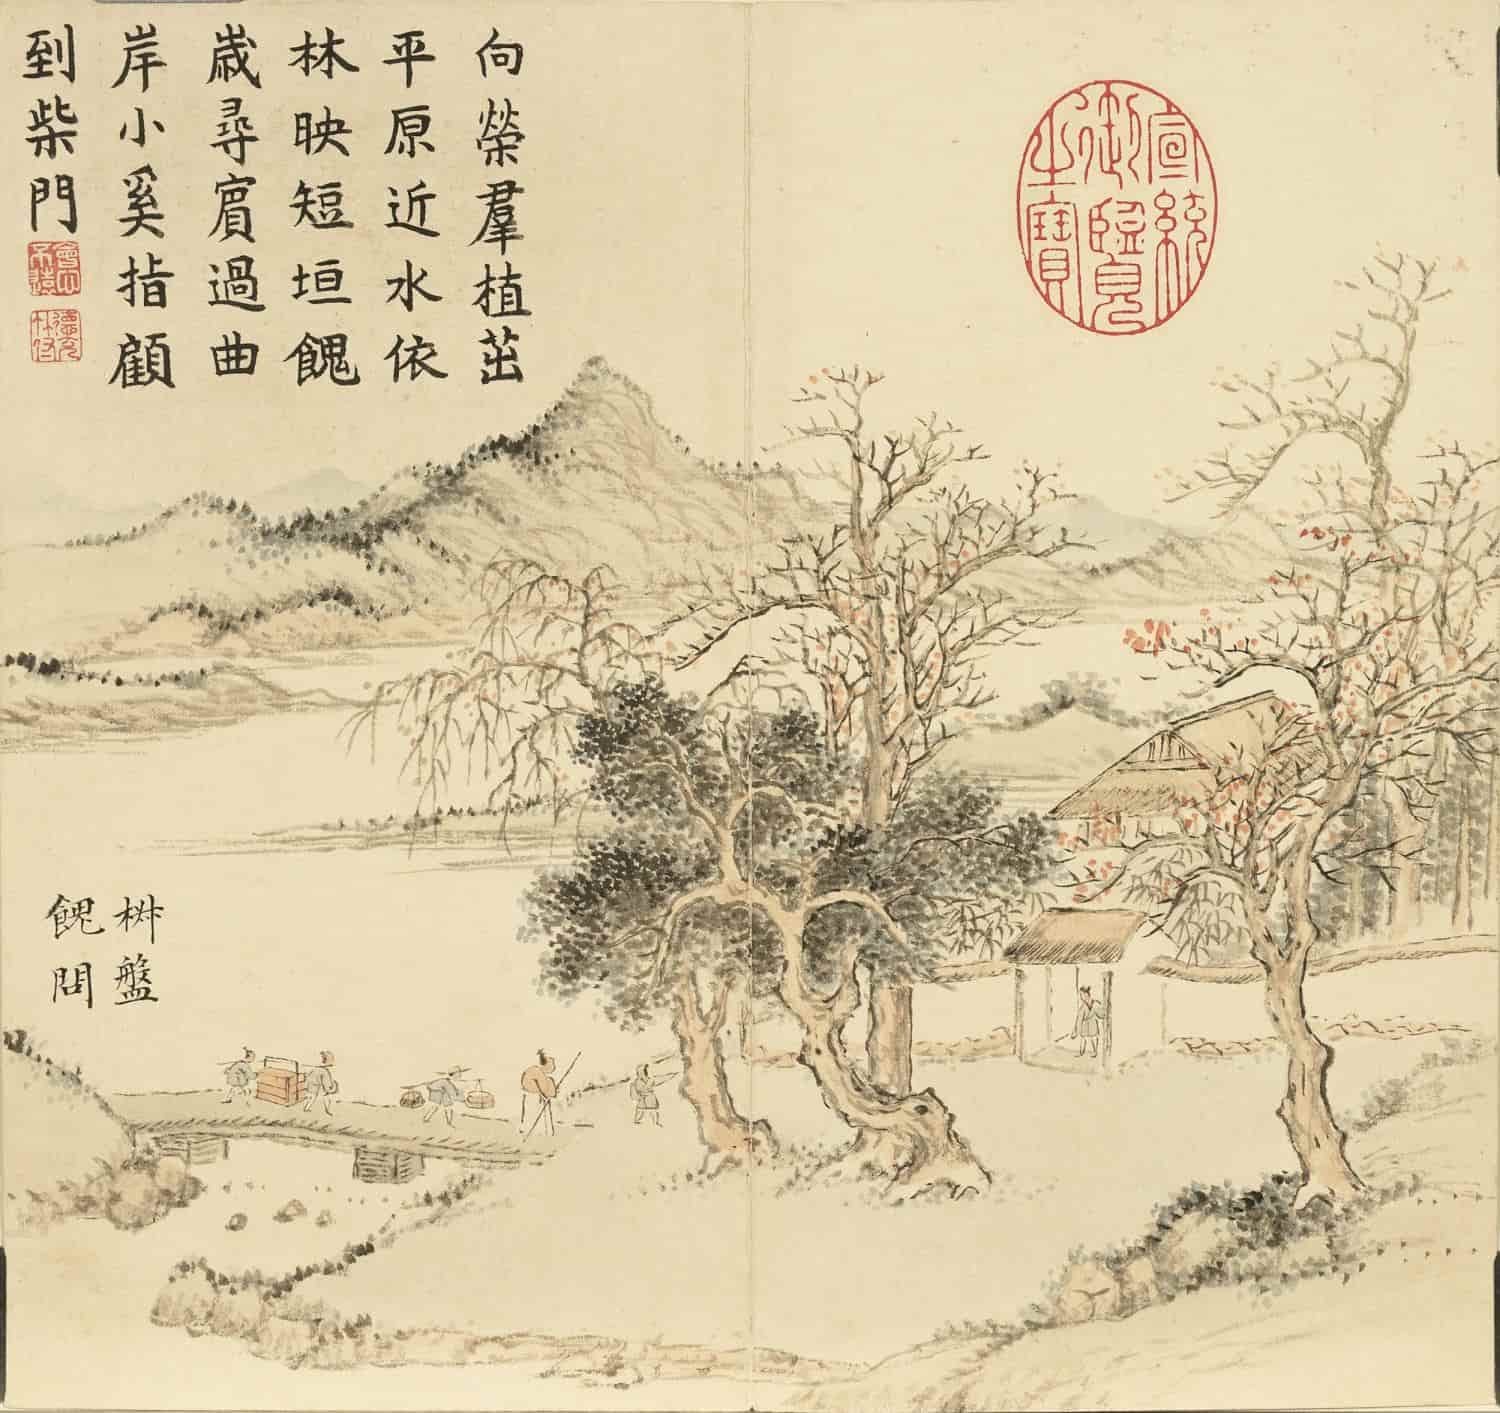 宣統
御覽
之寶
向榮羣植茁
平原近水依
林映短垣餽
歲尋賔過曲
岸小奚指顧
到柴門
會心
不遠
德充
符
椒盤
餽問